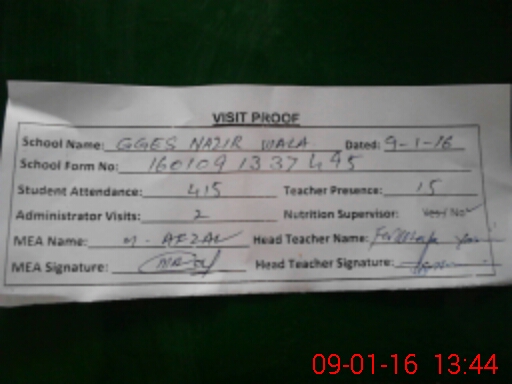 VISIT PROOF
School Name: GGES NAZIR WALA Dated: 9-1-16
School Form No: 160109 1337495
Student Attendance: 415 Teacher Presence: 15
Administrator Visits: 2 Nutrition Supervisor: Yes / No
MEA Name: M. AFZAL Head Teacher Name:
MEA Signature: Head Teacher Signature:
09-01-16 13:44